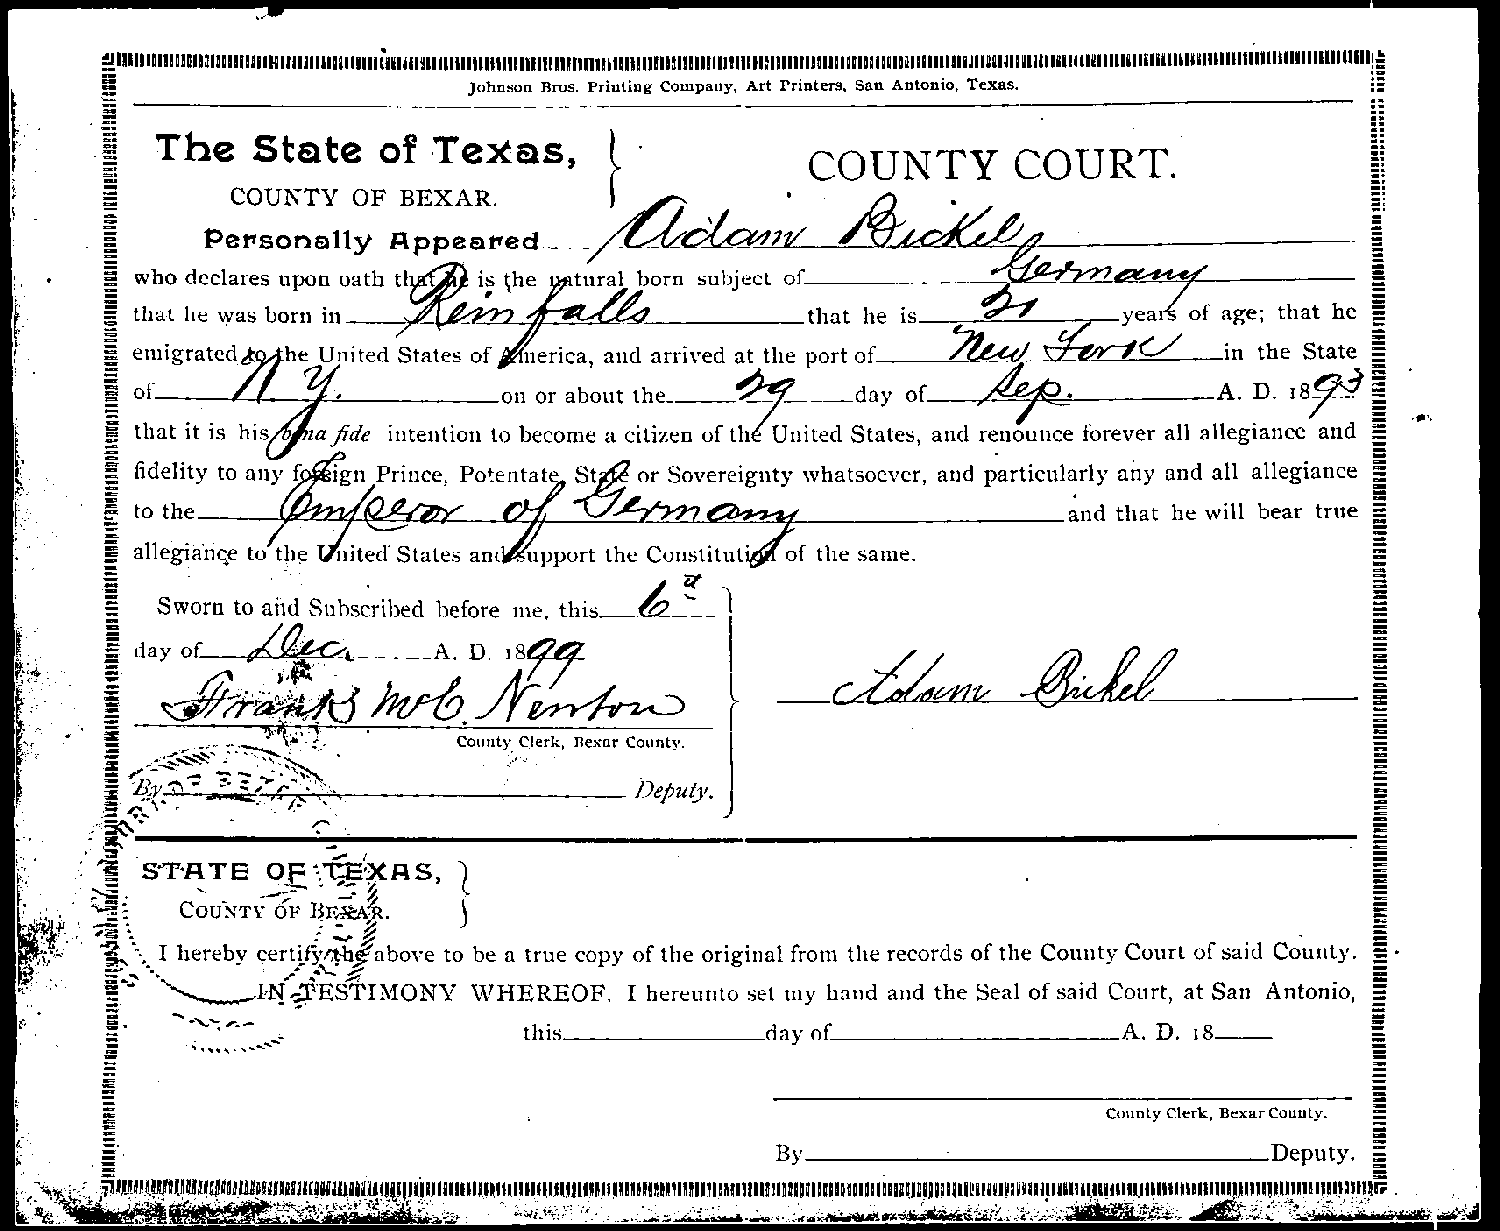 Johnson Bros. Printing Company, Art Printers, San Antonio, Texas.
The State of Texas,
COUNTY OF BEXAR.
COUNTY COURT.
Personally Appeared Adam Bickel
who declares upon oath that he is the natural born subject of Germany
that he was born in Reinfalls that he is years of age; that he
emigrated to the United States of America, and arrived at the port of New York in the State
of N. Y. on or about the 29 day of Sep. A. D. 1893
that it is his bona fide intention to become a citizen of the United States, and renounce forever all allegiance and
fidelity to any foreign Prince, Potentate, State or Sovereignty whatsoever, and particularly any and all allegiance
to the Emperor of Germany and that he will bear true
allegiance to the United States and support the Constitution of the same.
Sworn to and Subscribed before me, this 6
day of Dec. A. D. 1899
Frank McC. Newton
County Clerk, Bexar County.
By Deputy.
Adam Bickel
STATE OF TEXAS,
COUNTY OF BEXAR.
I hereby certify the above to be a true copy of the original from the records of the County Court of said County.
IN TESTIMONY WHEREOF, I hereunto set my hand and the Seal of said Court, at San Antonio,
this day of A. D. 18
County Clerk, Bexar County.
By Deputy.